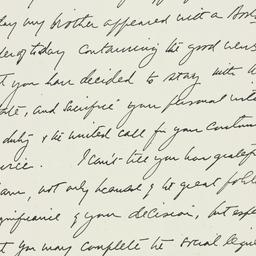 day my brother appeared with a Bost
der of today containing the good news
t you have decided to stay with
ate, and sacrifice your personal inte
duty & the united call for your continu
vice. I can't tell you how grateful
am, not only because of the great
gnificance of your decision, but espe
t you may complete the social legis